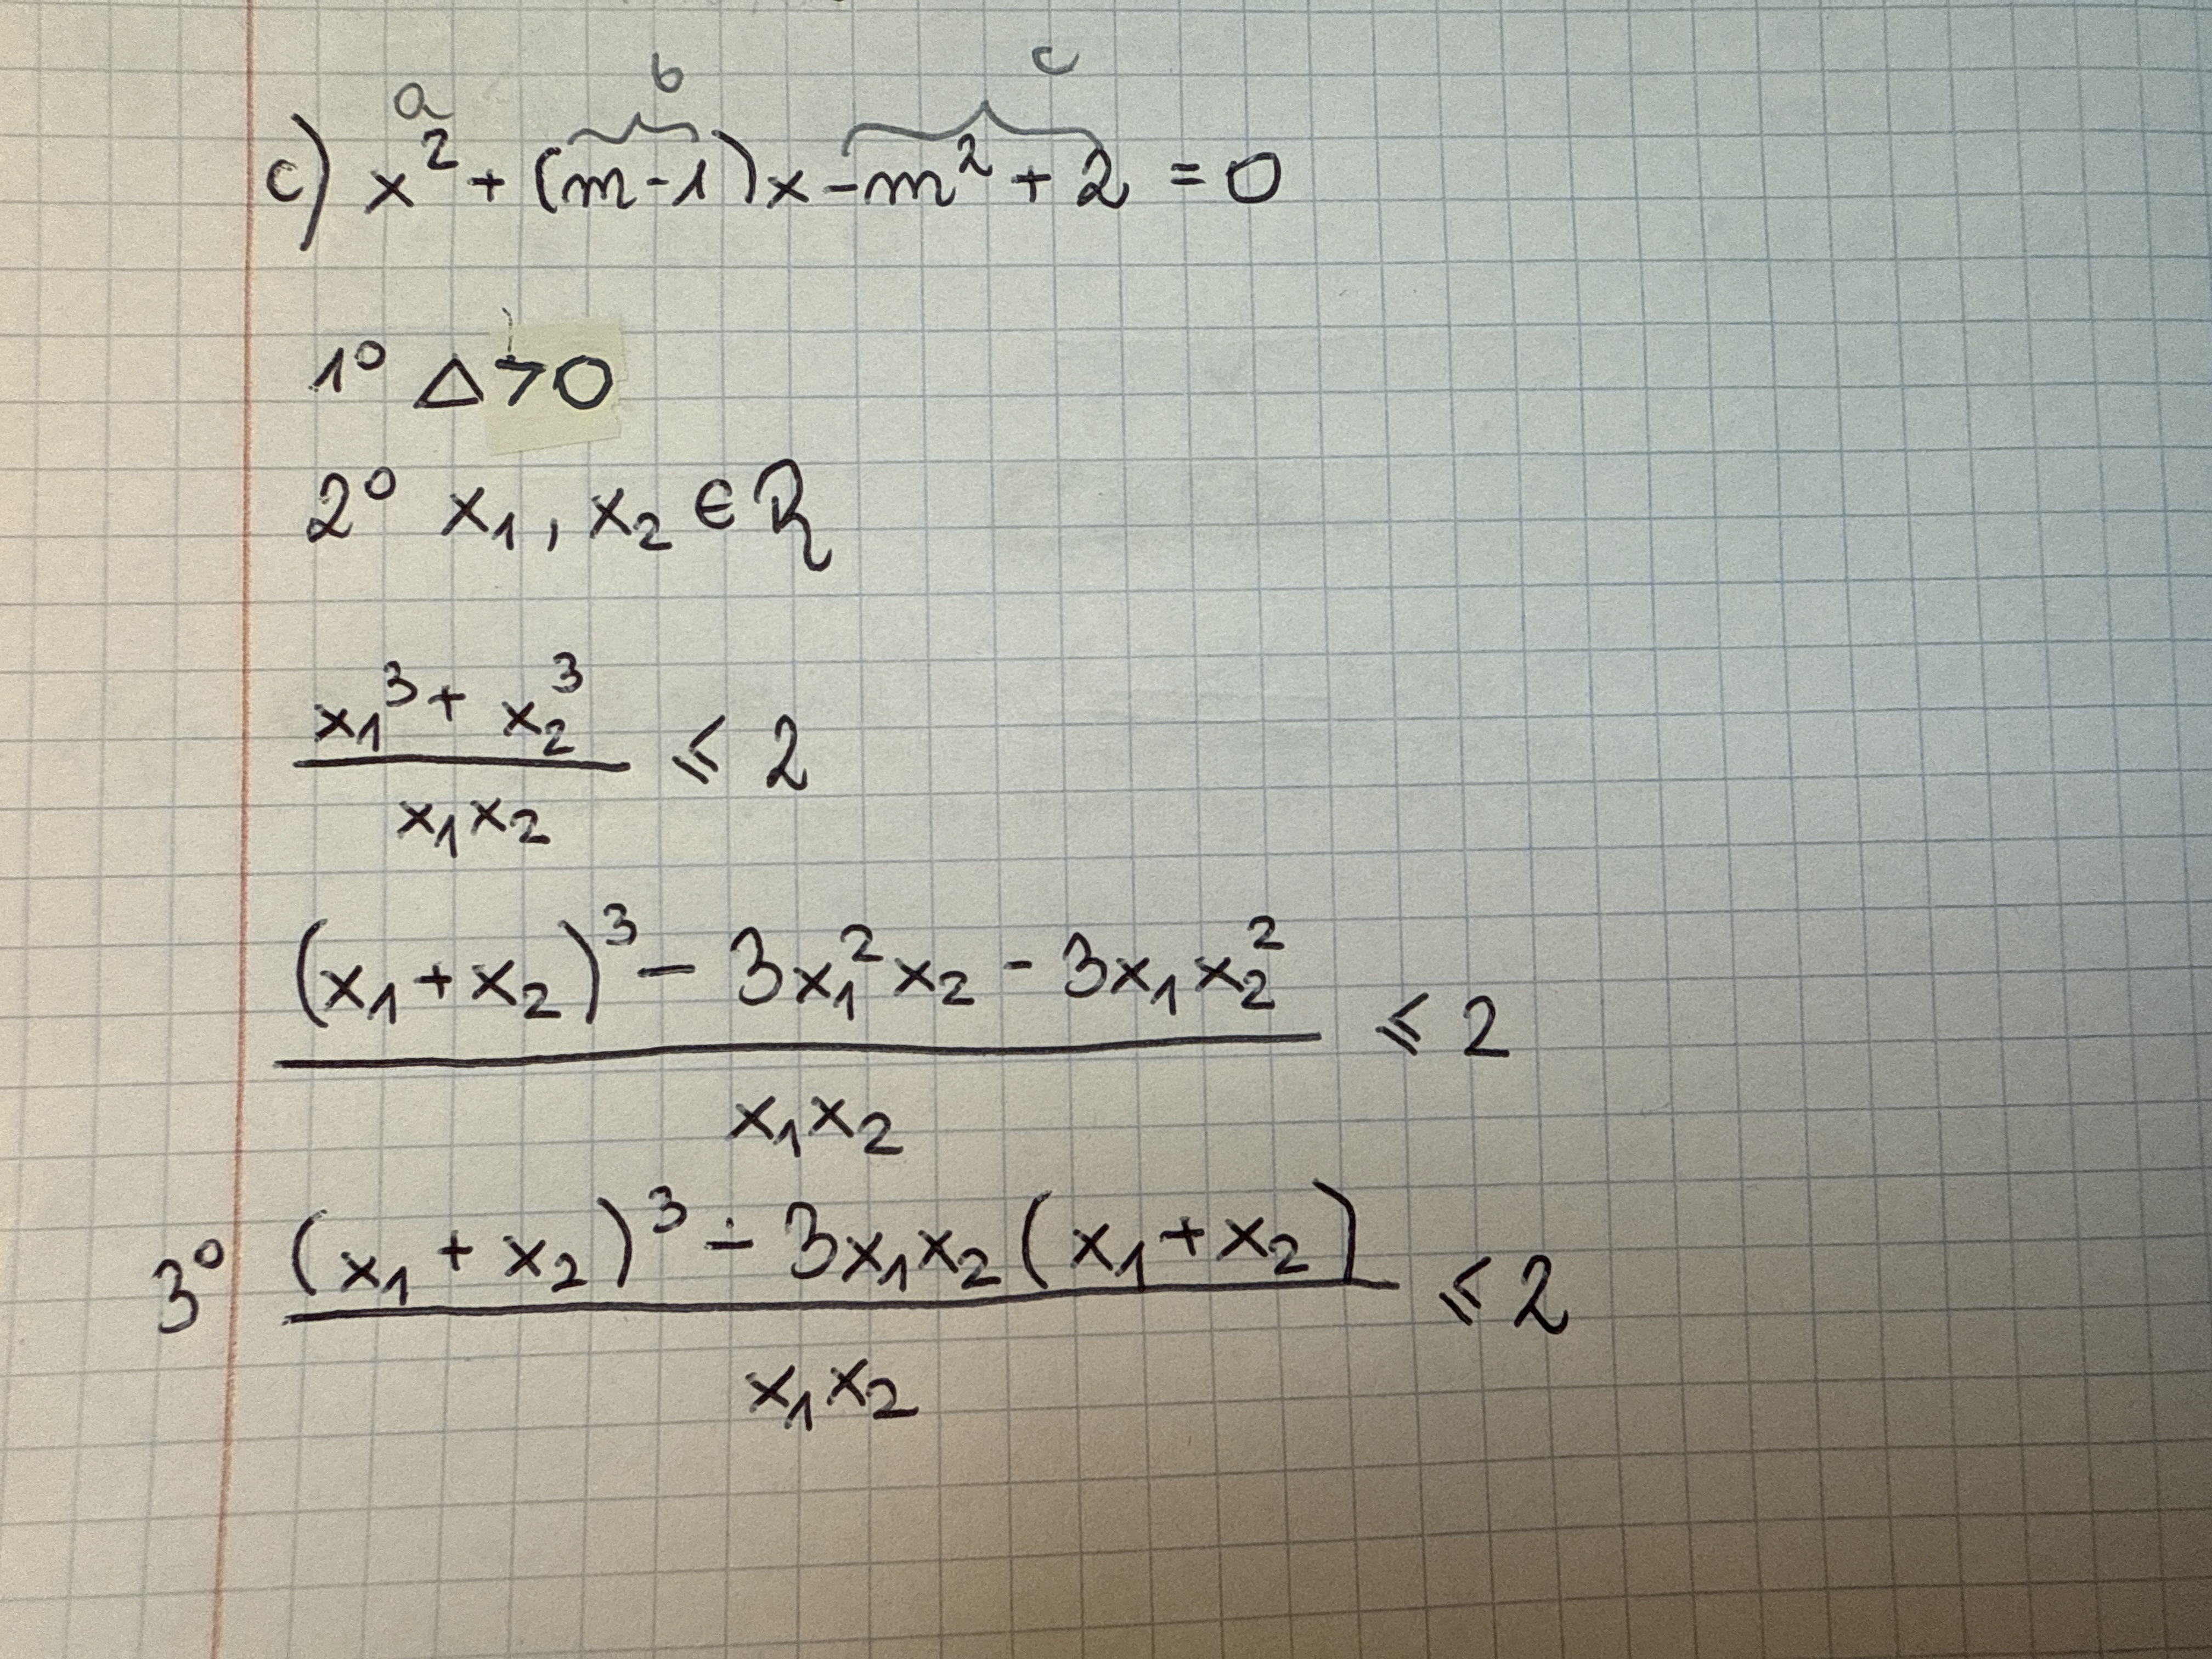 a b c
c) x² + (m-1)x -m² + 2 = 0
1° △ > 0
2° x₁, x₂ ∈ R
x₁³ + x₂³
───────── ⩽ 2
x₁x₂
(x₁+x₂)³ - 3x₁²x₂ - 3x₁x₂²
───────── ⩽ 2
x₁x₂
3° (x₁ + x₂)³ - 3x₁x₂(x₁+x₂)
───────── ⩽ 2
x₁x₂